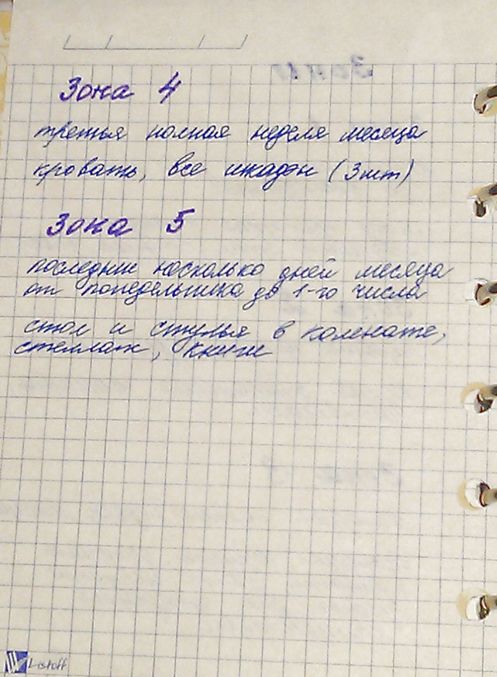 Зона 4
третья полная неделя месяца
кровать, все шкафы (3 шт)
Зона 5
последние несколько дней месяца
от понедельника до 1-го числа
стол и стулья в комнате,
стеллаж, книги
Listoff